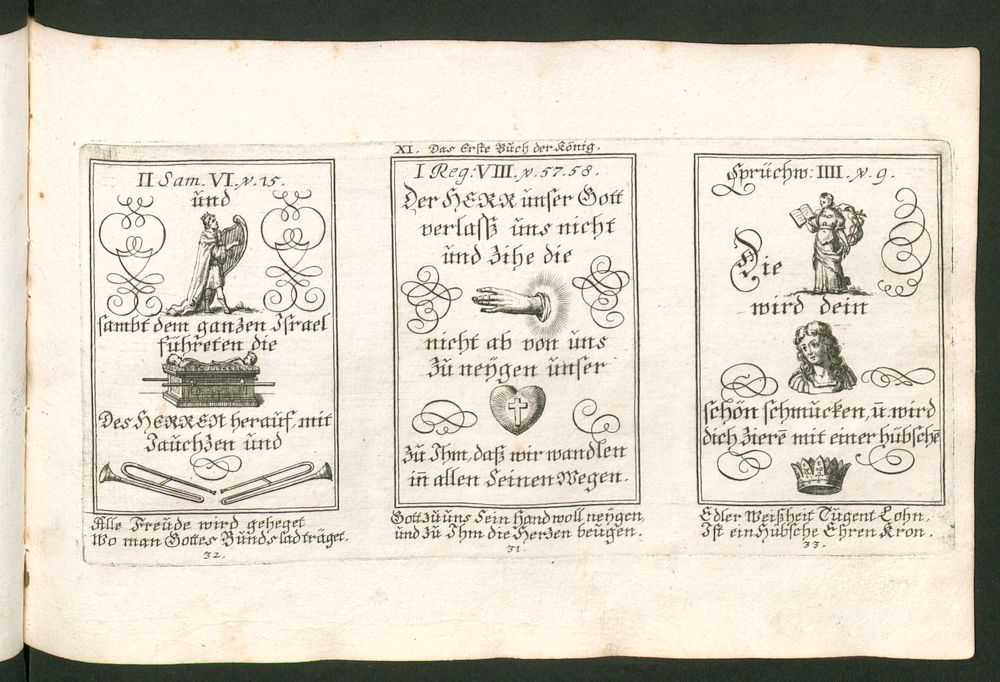 XI. Das Erste Buch der König.
II Sam. VI. v. 15.
und
sambt dem ganzen Israel
führeten die
Des HERREN herauf, mit
Jauchzen und
Alle Freude wird geheget
Wo man Gottes Bundslad träget.
32.
I Reg: VIII. v. 57. 58.
Der HERR unser Gott
verlass uns nicht
und zihe die
nicht ab von uns
Zu neÿgen unser
Zu Ihm, daß wir wandlen
in̄ allen Seinen Wegen.
Gott zu uns Sein Hand woll neÿgen,
und zu Ihm die Herzen beugen.
31.
Sprüchw: IIII. v. 9.
Die
wird dein
schön schmucken, ū. wird
dich Zierē mit einer hübschē
Edler Weißheit Tugent Lohn,
Ist ein Hübsche Ehren Kron.
33.